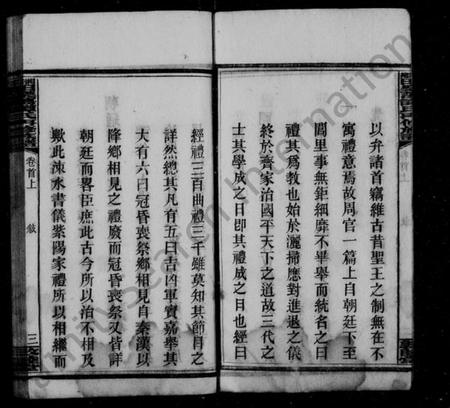 以弁諸首竊維古昔聖王之制無在不
寓禮意焉故周官一篇上自朝廷下至
閭里事無鉅細靡不畢舉而統名之曰
禮其為教也始於灑掃應對進退之儀
終於齊家治國平天下之道故三代之
士其學成之日即其禮成之日也經曰
經禮三百曲禮三千雖莫知其節目之
詳然總其凡有五曰吉凶軍賓嘉舉其
大有六曰冠昏喪祭鄉相見自秦漢以
降鄉相見之禮廢而冠昏喪祭又皆詳
朝廷而畧臣庶此古今所以治不相及
歟此涑水書儀紫陽家禮所以相繼而
卷首上
敘
三
卷首上
FamilySearch International